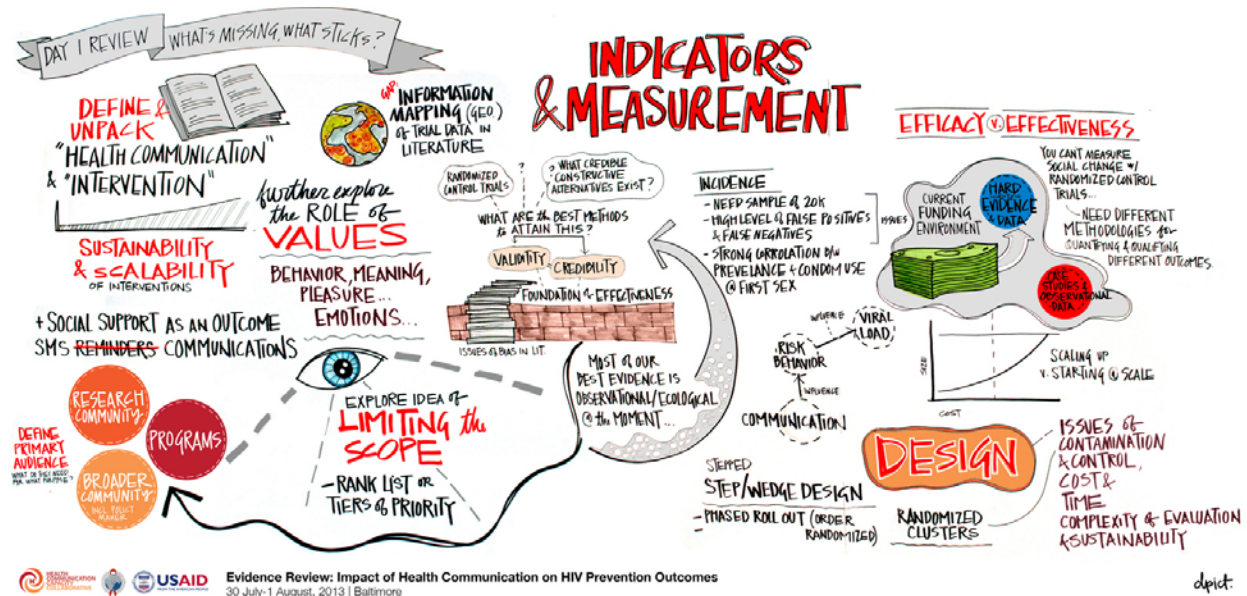 DAY 1 REVIEW
WHAT'S MISSING, WHAT STICKS?
DEFINE &
UNPACK
"HEALTH COMMUNICATION"
& "INTERVENTION"
SUSTAINABILITY
& SCALABILITY
OF INTERVENTIONS
+ SOCIAL SUPPORT AS AN OUTCOME
SMS REMINDERS COMMUNICATIONS
RESEARCH
COMMUNITY
PROGRAMS
BROADER
COMMUNITY
INCL POLICY
MAKER
DEFINE
PRIMARY
AUDIENCE
WHAT DO THEY NEED
FOR WHAT PURPOSE?
GAP:
INFORMATION
MAPPING (GEO.)
of TRIAL DATA IN
LITERATURE
further explore
the ROLE of
VALUES
BEHAVIOR, MEANING,
PLEASURE...
EMOTIONS...
EXPLORE IDEA of
LIMITING the
SCOPE
- RANK LIST OR
TIERS of PRIORITY
INDICATORS
& MEASUREMENT
RANDOMIZED
CONTROL TRIALS
?
? WHAT CREDIBLE
CONSTRUCTIVE
ALTERNATIVES EXIST?
WHAT ARE the BEST METHODS
to ATTAIN THIS?
VALIDITIY
CREDIBILITY
FOUNDATION of EFFECTIVENESS
ISSUES of BIAS IN LIT.
MOST of OUR
BEST EVIDENCE IS
OBSERVATIONAL/ECOLOGICAL
@ the MOMENT...
INCIDENCE
- NEED SAMPLE of 20K
- HIGH LEVEL of FALSE POSITIVES
& FALSE NEGATIVES
- STRONG CORROLATION b/w
PREVELANCE + CONDOM USE
@ FIRST SEX
ISSUES
VIRAL
LOAD
INFLUENCE
RISK
BEHAVIOR
INFLUENCE
COMMUNICATION
STEPPED
STEP/WEDGE DESIGN
- PHASED ROLL OUT (ORDER
RANDOMIZED)
-
EFFICACY v. EFFECTIVENESS
CURRENT
FUNDING
ENVIRONMENT
HARD
EVIDENCE
& DATA
CASE
STUDIES &
OBSERVATIONAL
DATA
YOU CAN'T MEASURE
SOCIAL CHANGE w/
RANDOMIZED CONTROL
TRIALS...
NEED DIFFERENT
METHODOLOGIES for
QUANTIFYING & QUALIFYING
DIFFERENT OUTCOMES.
SIZE
COST
SCALING UP
v. STARTING @ SCALE
DESIGN
RANDOMIZED
CLUSTERS
ISSUES of
CONTAMINATION
& CONTROL,
COST &
TIME
COMPLEXITY of EVALUATION
& SUSTAINABILITY
HEALTH
COMMUNICATION
CAPACITY
COLLABORATIVE
USAID
FROM THE AMERICAN PEOPLE
Evidence Review: Impact of Health Communication on HIV Prevention Outcomes
30 July-1 August, 2013 | Baltimore
dpict.